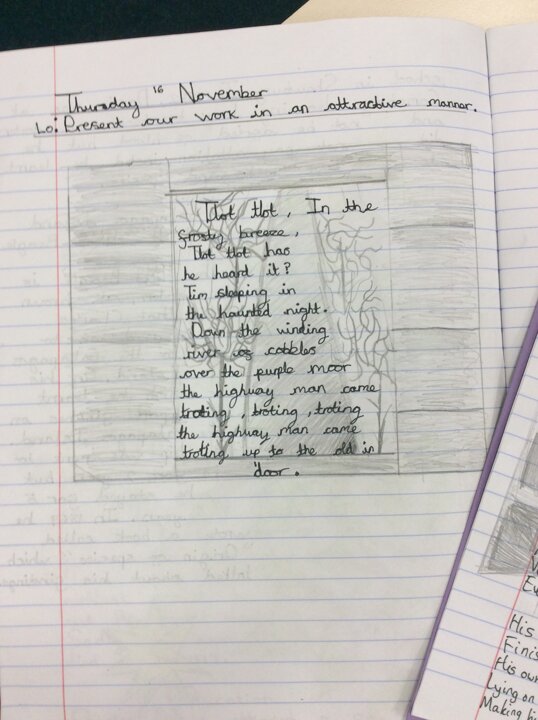 Thursday 16 November
Lo: Present our work in an attractive manner.
Tlot tlot, In the
frosty breeze,
Tlot tlot has
he heard it?
Tim sleeping in
the haunted night.
Down the winding
river of cobbles
over the purple moor
the highway man came
troting, troting, troting
the highway man came
troting up to the old in
door.
His
Finis
His own
Lying on
Making hi